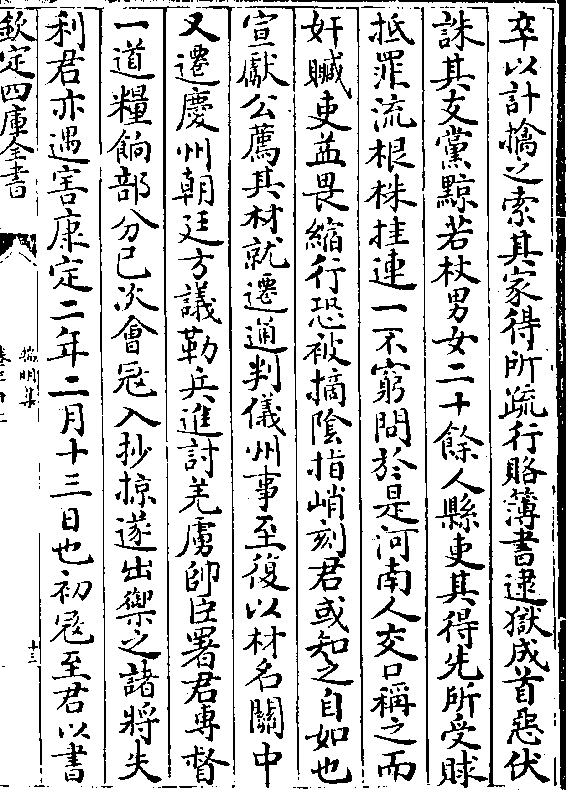 卒以計擒之索其家得所疏行賂簿書逮獄成首惡伏
誅其支黨黥若杖男女二十餘人縣吏其得先所受賕
抵罪流根株挂連一不窮問於是河南人交口稱之而
奸贓吏益畏縮行恐被擿陰指峭刻君或知之自如也
宣獻公薦其材就遷通判儀州事至復以材名關中
又遷慶州朝廷方議勒兵進討羌虜帥臣署君專督
一道糧餉部分已次會冦入抄掠遂出禦之諸將失
利君亦遇害康定二年二月十三日也初冦至君以書
欽定四庫全書
端明集
十三